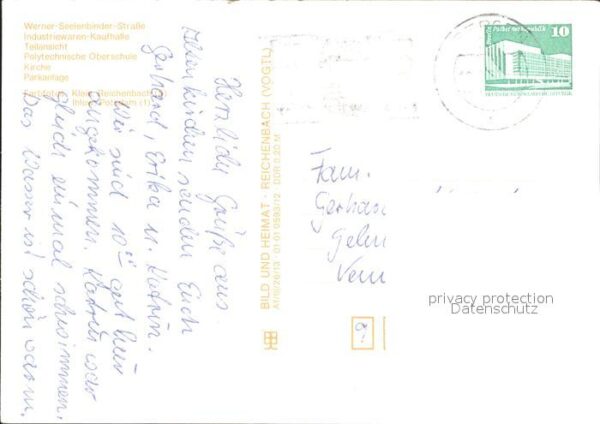 Werner-Seelenbinder-Straße
Industriewaren-Kaufhalle
Teilansicht
Polytechnische Oberschule
Kirche
Parkanlage
Klaus Reichenbach
Potsdam (1)
Herzliche Grüße aus
senden Euch
Gerhard, Erika u. Katrin.
Wir sind 10⁰⁰ gut hier
angekommen. Katrin war
gleich einmal schwimmen.
Das Wasser ist schön warm.
BILD UND HEIMAT · REICHENBACH (VOGTL)
A1/III/26/13 · 01 01 0593/12 DDR 0,20 M
10
Palast der Republik
DEUTSCHE DEMOKRATISCHE REPUBLIK
Fam.
Gerhar
privacy protection
Datenschutz